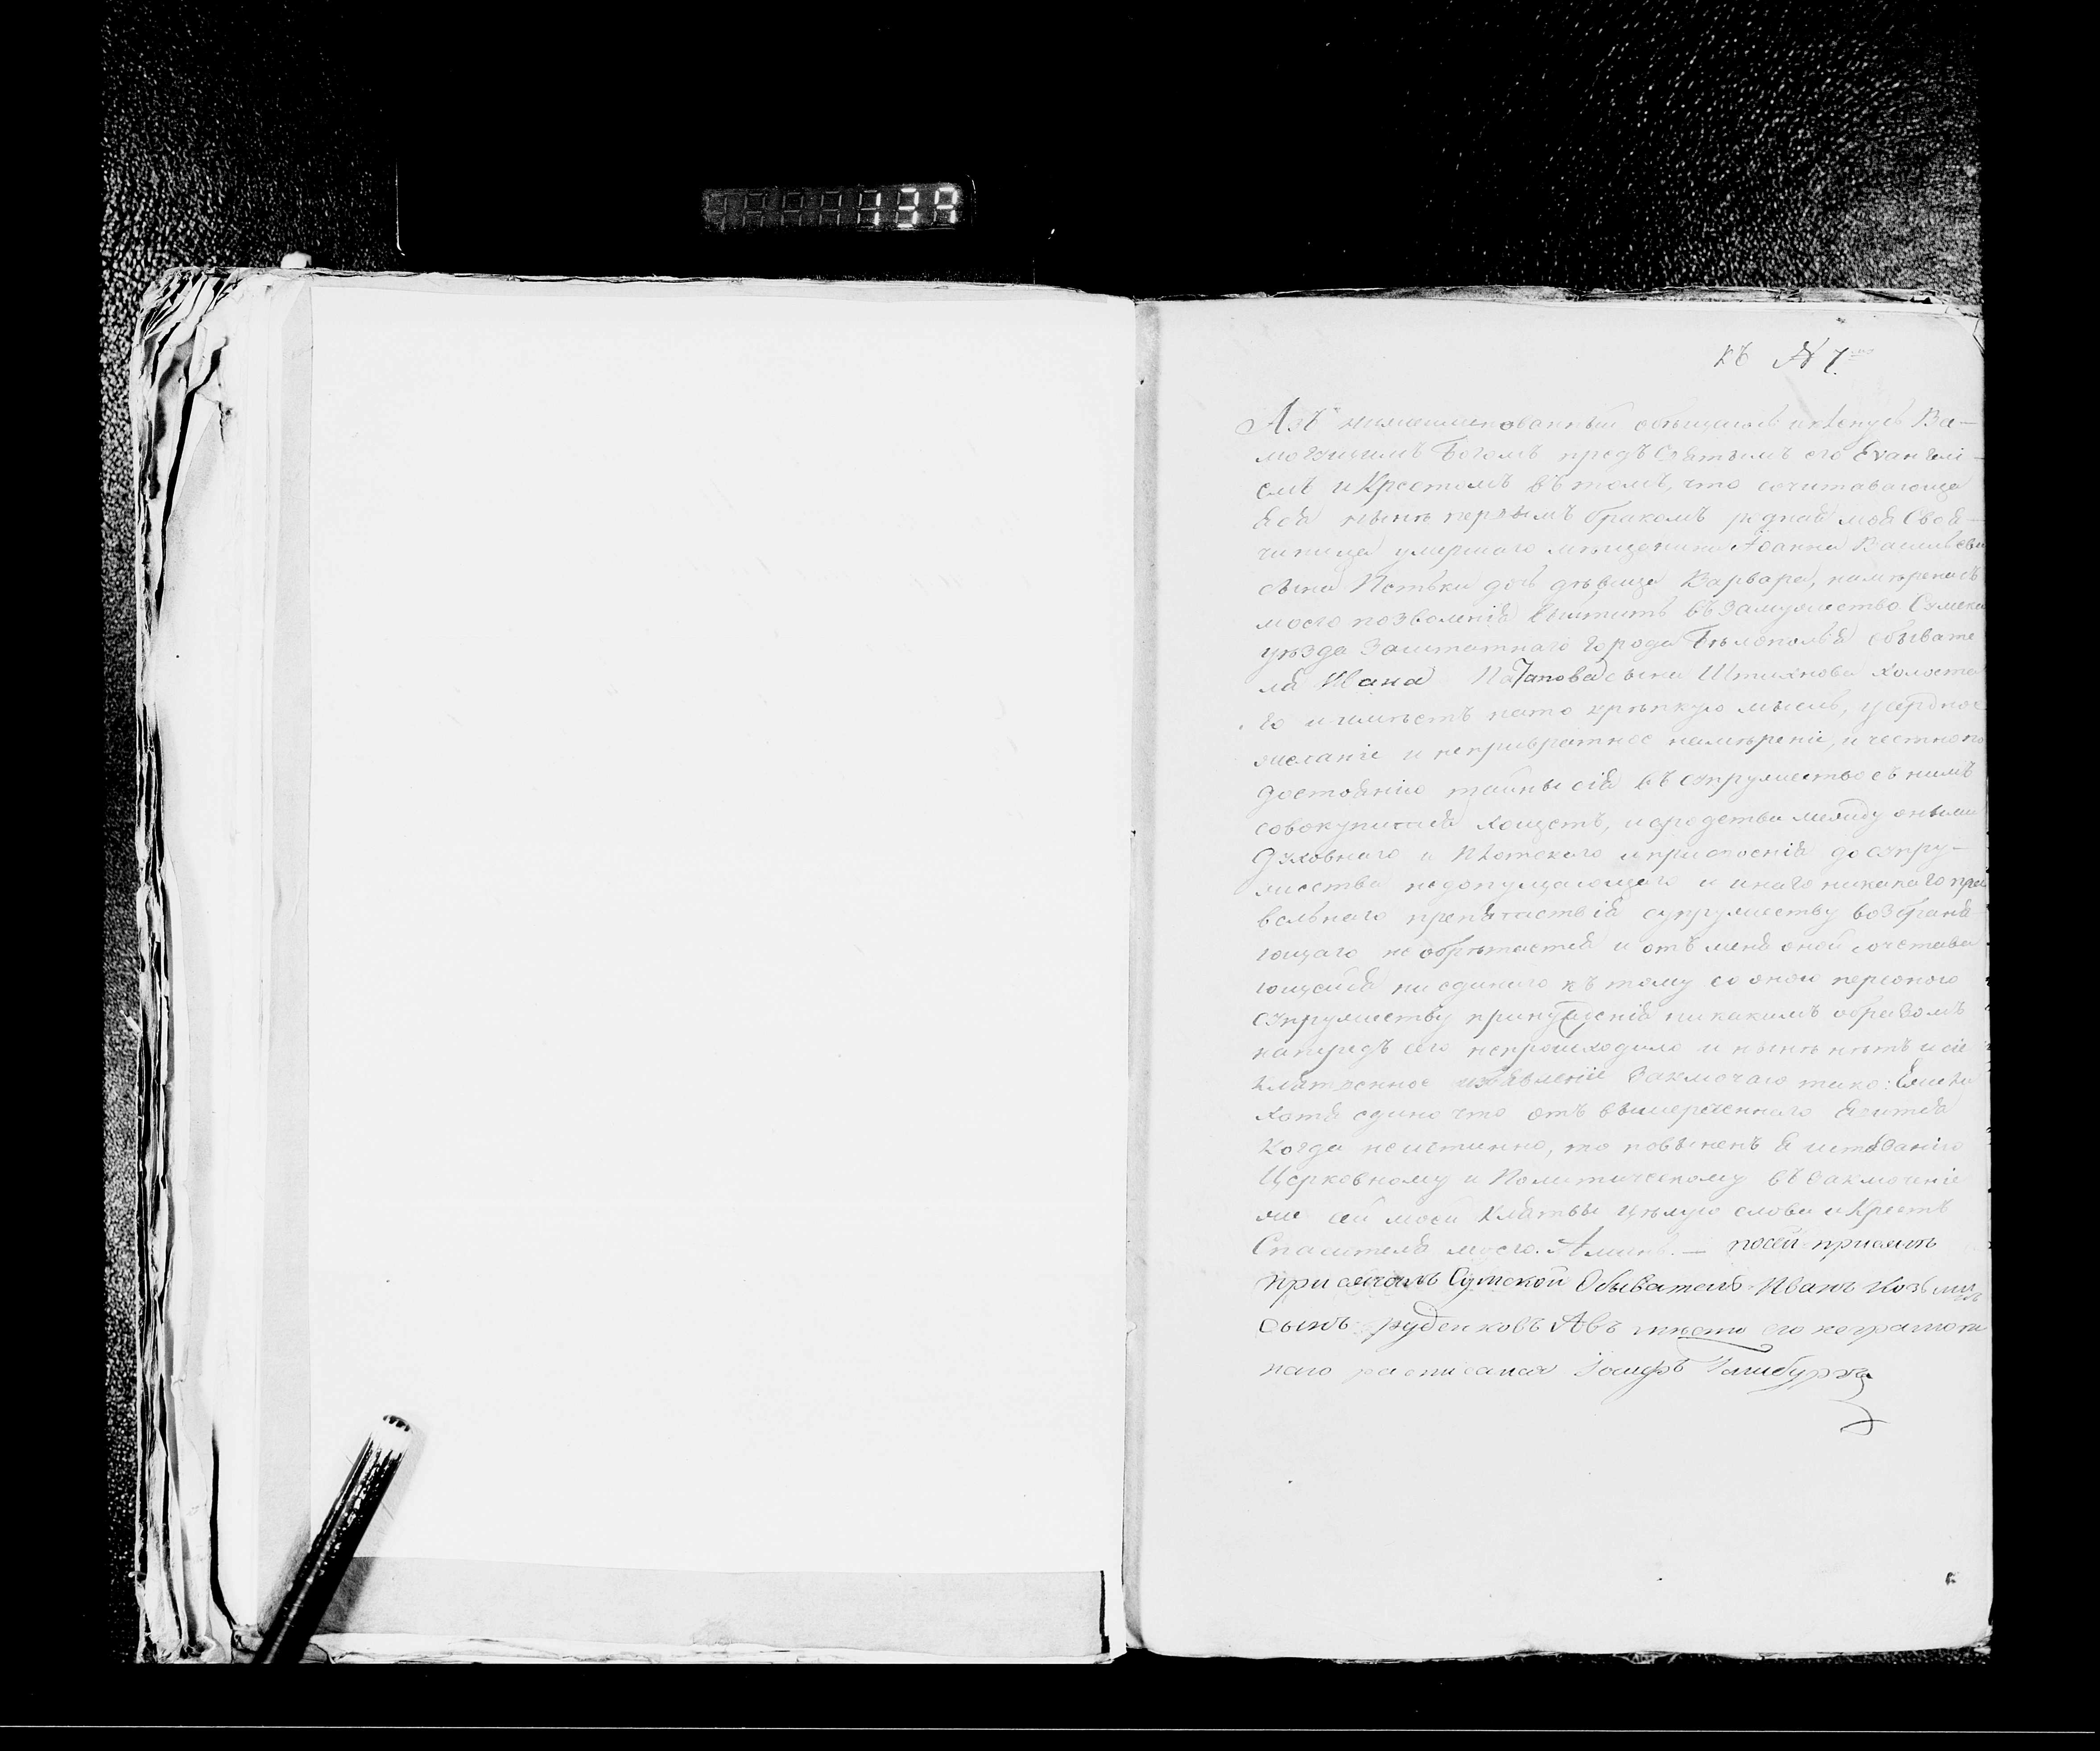 134
къ № 7.
Азъ нижеименованный обѣщаюсь и кленусь Все-
могущимъ Богомъ предъ Святымъ его Еvангелі-
емъ и Крестомъ въ томъ, что сочитавающа
яся нынѣ первымъ бракомъ родная моя Своя-
чиница умершаго мѣщенина Іоанна Васильева
сына дочь дѣвица Варвара, намѣрена съ
моего позволенія въ замужество Сумска
уѣзда Заштатнаго города Бѣлополья обывате
ля Ивана Патапова сына холоста
го и имѣетъ на то крѣпкую мысль, усердное
желаніе и непривратное намѣреніе, и честно по
достоянію тайны сія въ супружество съ нимъ
совокупитися хощетъ, и сродства между оными
Духовнаго и Плотскаго и присвоенія до супру-
жества недопущающаго и инаго никакаго пра
вельнаго препятствія супружеству возбраня
ющаго не обрѣтается и отъ меня оной сочетава
ющейся ни единаго къ тому со оною персоною
супружеству принужденія никакимъ образомъ
напредъ сего непроисходило и нынѣ нѣтъ и сіе
клятвенное изъявленіе заключаю тако: Ежели
хотя едино что отъ вышереченнаго явится
когда неистинно, то повиненъ я истязанію
Церковному и Политическому въ заключеніе
же сей моей клятвы цѣлую слова и Крестъ
Спасителя моего. Аминь. — посей присяги
присягалъ Сумской Обыватель Иванъ Козьминъ
сынъ руденковъ Авъ мѣсто его неграмотн
наго росписался Іосифъ